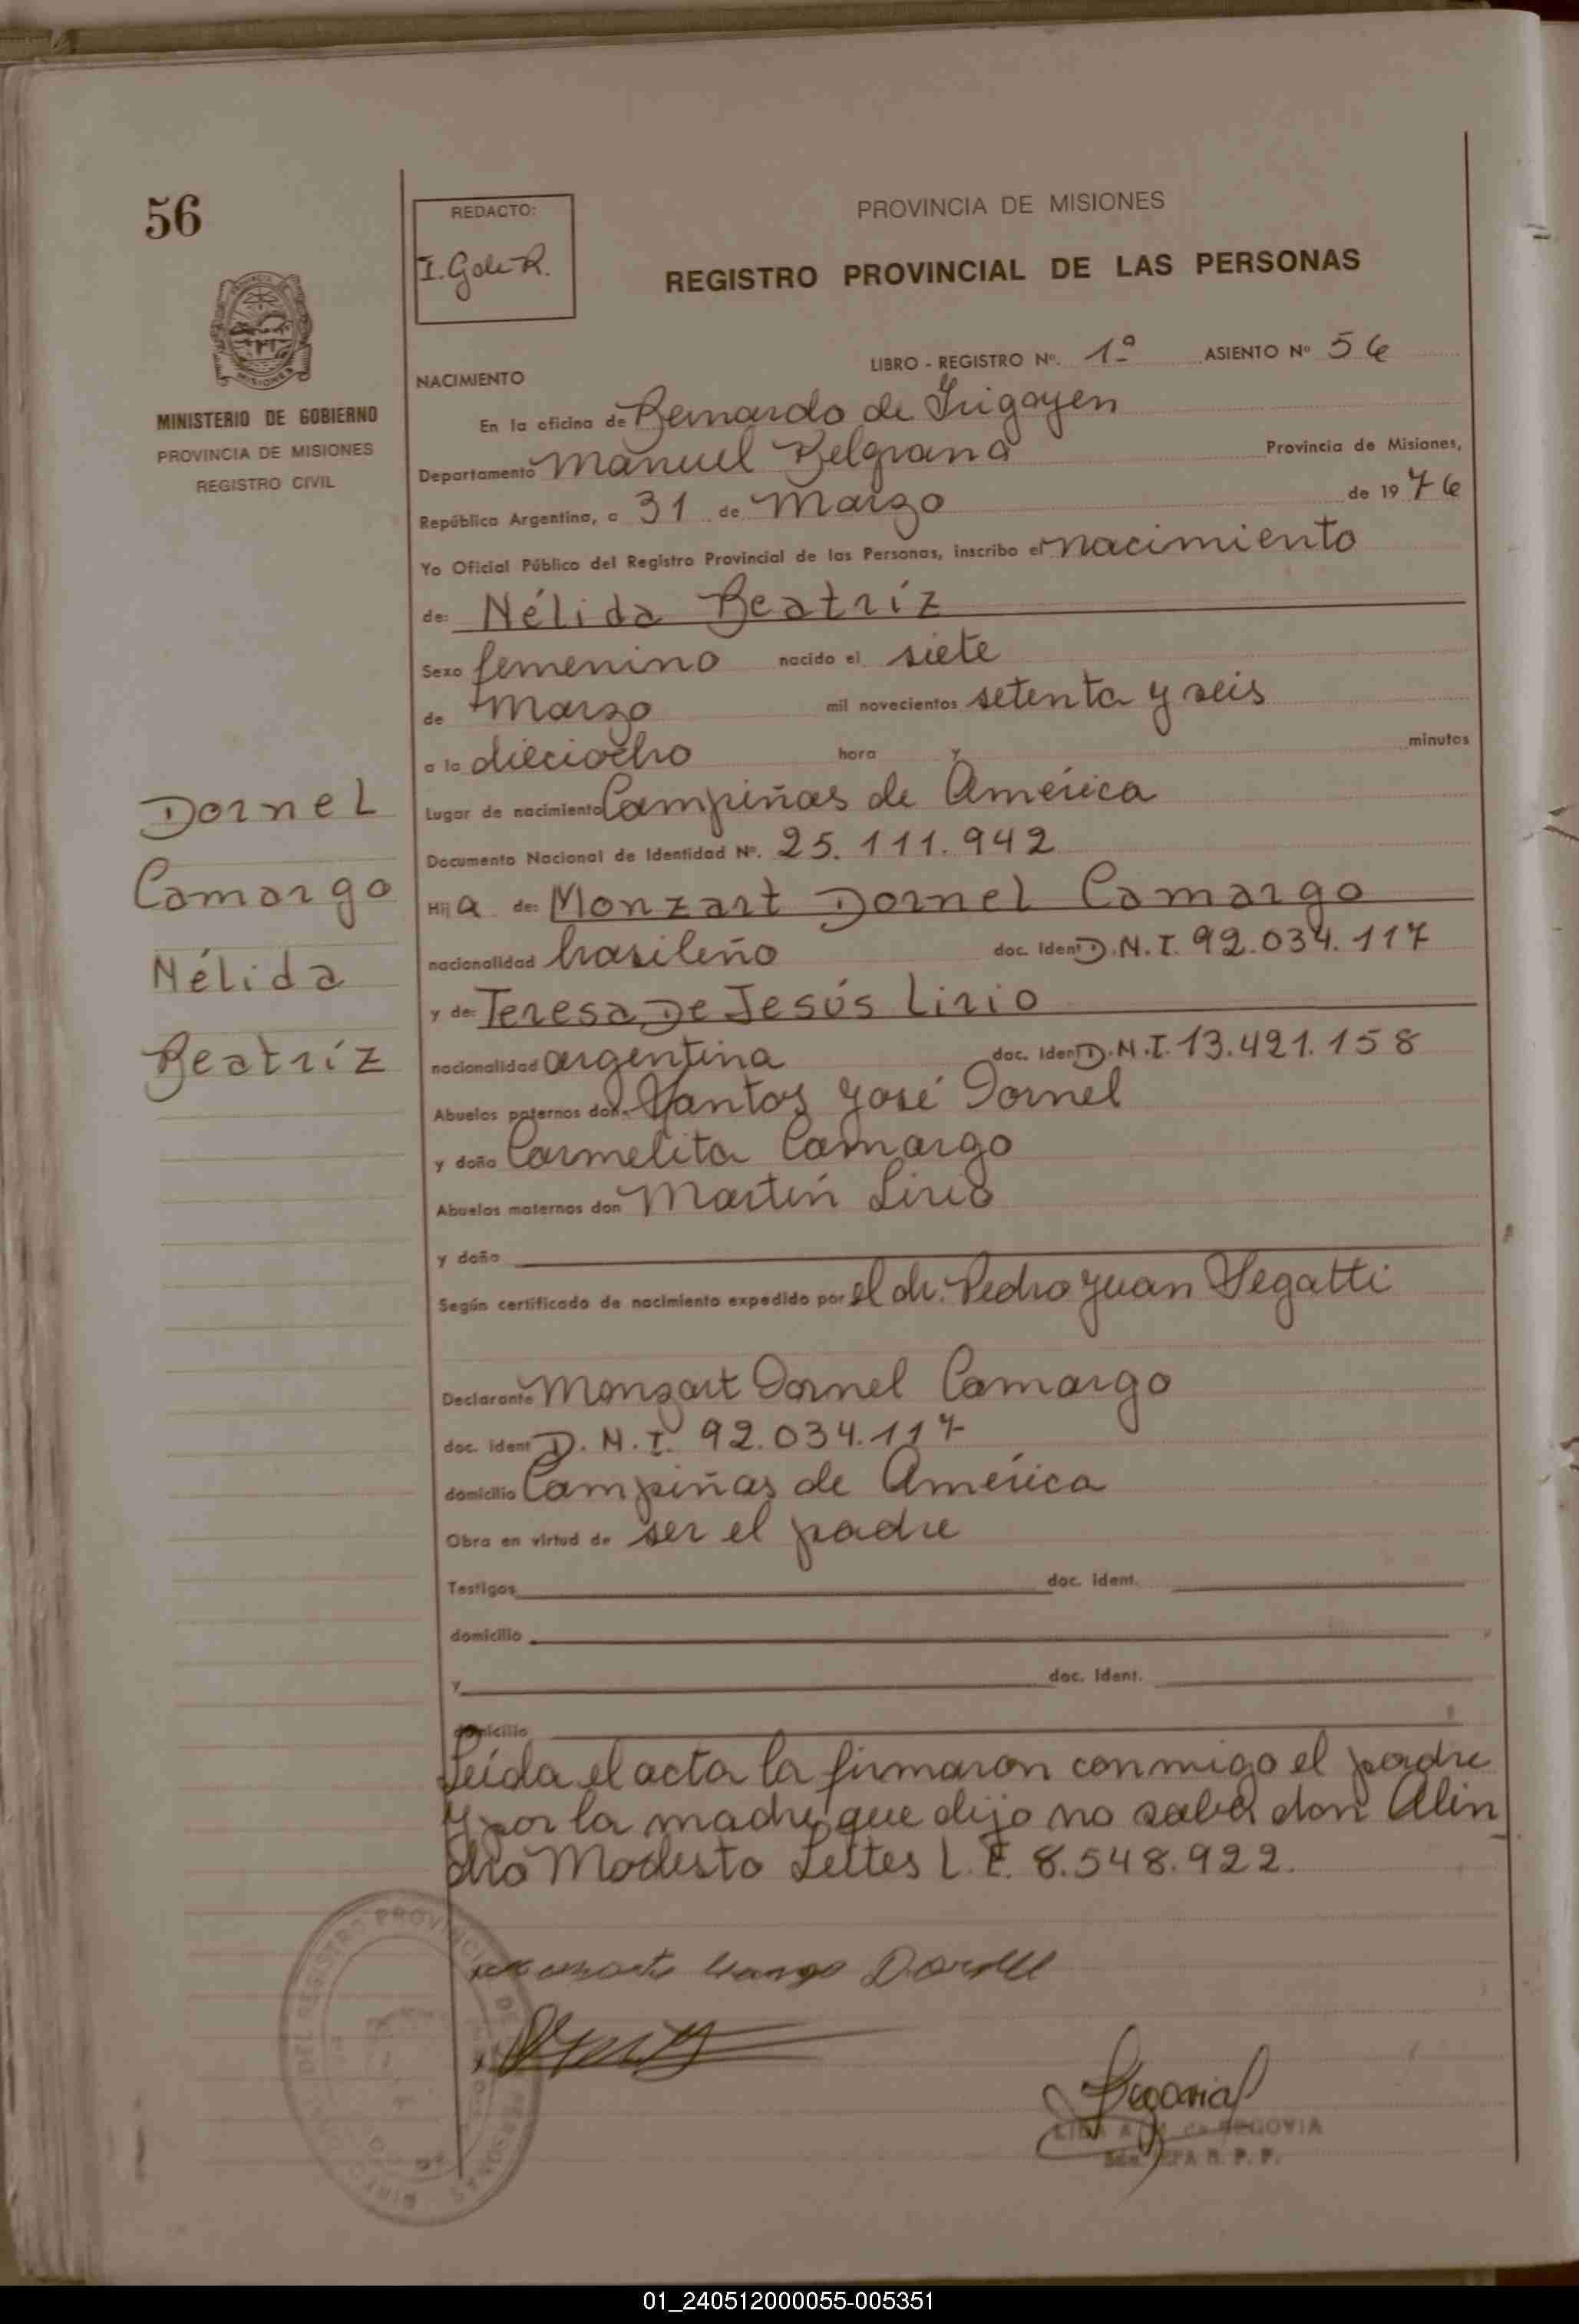 56
REDACTO:
I. Gale R.
PROVINCIA DE MISIONES
REGISTRO PROVINCIAL DE LAS PERSONAS
MISIONES
MINISTERIO DE GOBIERNO
PROVINCIA DE MISIONES
REGISTRO CIVIL
LIBRO - REGISTRO Nº. 1º ASIENTO Nº 56
NACIMIENTO
En la oficina de Bernardo de Irigoyen
Departamento Manuel Belgrano Provincia de Misiones,
República Argentina, a 31 de Marzo de 1976
Yo Oficial Público del Registro Provincial de las Personas, inscribo el nacimiento
de: Nélida Beatríz
Sexo femenino nacido el siete
de Marzo mil novecientos setenta y seis
a la dieciocho hora y minutos
Lugar de nacimiento Campiñas de América
Documento Nacional de Identidad Nº. 25.111.942
Hija de: Monzart Dornel Camargo
nacionalidad brasileño doc. Ident D.N.I. 92.034.117
y de: Teresa De Jesús Lirio
nacionalidad argentina doc. Ident D.N.I. 13.421.158
Abuelos paternos don Santos José Dornel
y doña Carmelita Camargo
Abuelos maternos don Martín Lirio
y doña
Según certificado de nacimiento expedido por el dr. Pedro Juan Segatti
Declarante Monzart Dornel Camargo
doc. ident D.N.I. 92.034.117
domicilio Campiñas de América
Obra en virtud de ser el padre
Testigos doc. ident.
domicilio
y doc. ident.
domicilio
Leída el acta la firmaron conmigo el padre
y por la madre que dijo no saber don Alin
dro Modesto Leites L.E. 8.548.922.
Dornel
Camargo
Nélida
Beatríz
Segovia
DEL REGISTRO PROVINCIAL DE PERSONAS
SEGOVIA
R. P. P.
01_240512000055-005351